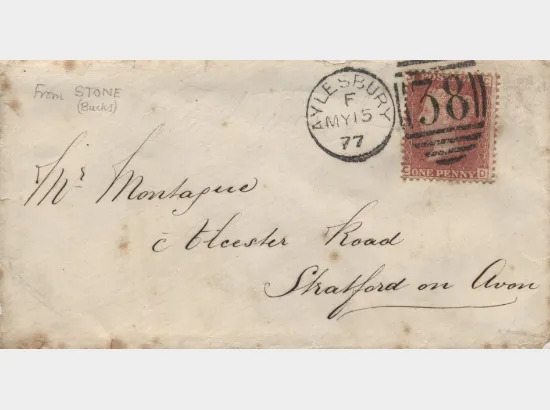 From STONE
(Bucks)
AYLESBURY
F
MY 15
77
38
ONE PENNY
Mr Montague
Alcester Road
Stratford on Avon